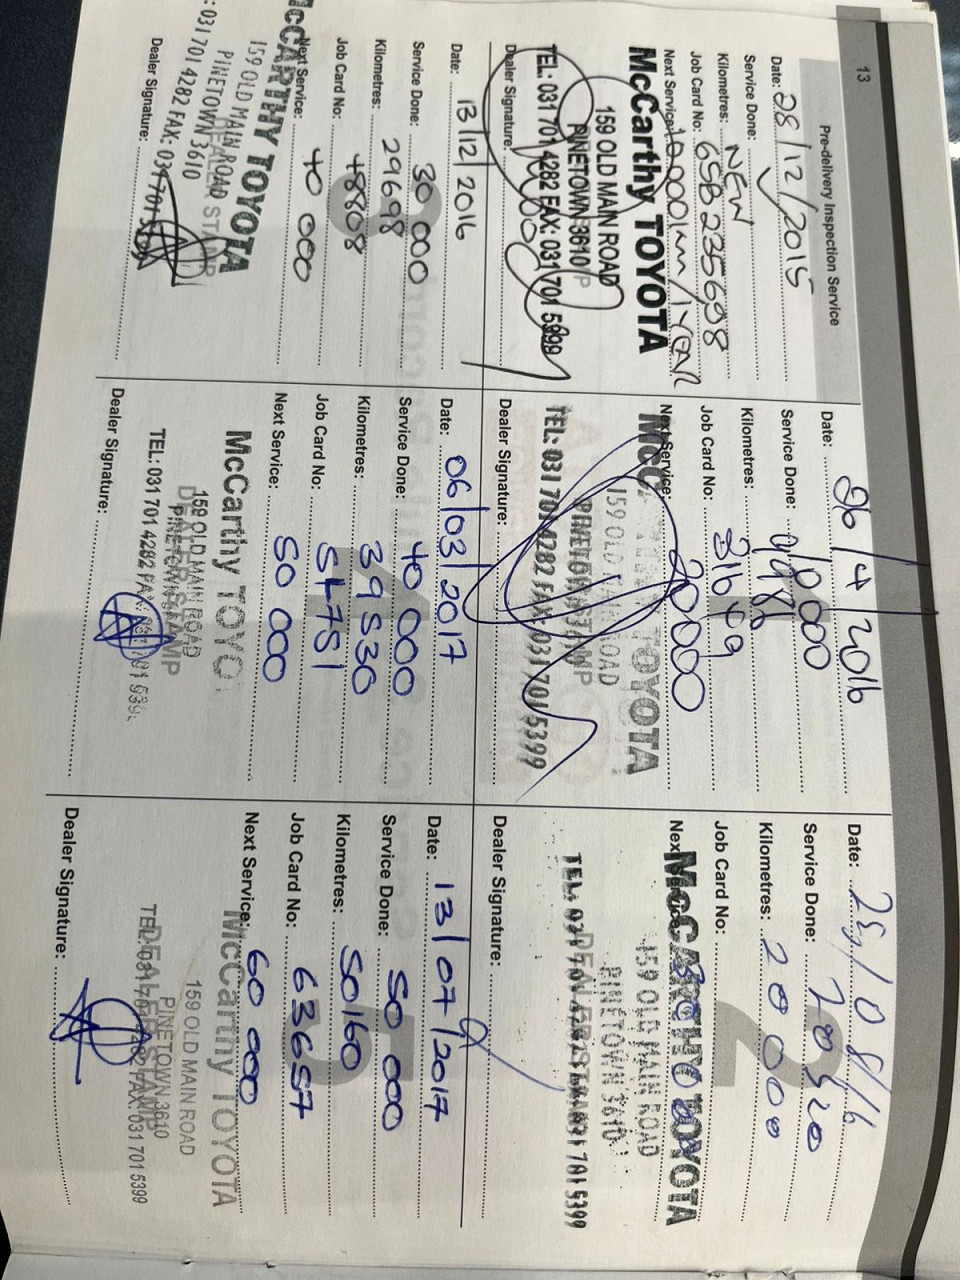 13
Pre-delivery Inspection Service
Date: 28/12/2015
Service Done:
Kilometres: NEW
Job Card No: 6SB235698
Next Service: 10000km/1YEAR
McCarthy TOYOTA
159 OLD MAIN ROAD
PINETOWN 3610
TEL: 031 701 4282 FAX: 031 701 5399
Dealer Signature:
1
Date: 26/4/2016
Service Done: 10000
Kilometres:
Job Card No: 31649
Next Service: 20000
TOYOTA
159 OLD MAIN ROAD
PINETOWN
TEL: 031 701 4282 FAX: 031 701 5399
Dealer Signature:
2
Date: 25/08/16
Service Done:
Kilometres:
Job Card No:
Next Service:
McCARTHY TOYOTA
159 OLD MAIN ROAD
PINETOWN 3610
TEL: 031 701 4282 FAX: 031 701 5399
Dealer Signature:
3
Date: 13/12/2016
Service Done: 30 000
Kilometres: 29698
Job Card No: 48808
Next Service: 40 000
McCARTHY TOYOTA
159 OLD MAIN ROAD
PINETOWN 3610
DEALER STAMP
: 031 701 4282 FAX: 031 701 5399
Dealer Signature:
4
Date: 06/03/2017
Service Done: 40 000
Kilometres: 39530
Job Card No: 54751
Next Service: 50 000
McCarthy TOYO
159 OLD MAIN ROAD
PINETOWN
DEALER STAMP
TEL: 031 701 4282 FAX: 031 701 539
Dealer Signature:
5
Date: 13/07/2017
Service Done: 50 000
Kilometres: 50160
Job Card No: 63657
Next Service: 60 000
McCarthy TOYOTA
159 OLD MAIN ROAD
PINETOWN 3610
DEALER STAMP
TEL: 031 701 4282 FAX: 031 701 5399
Dealer Signature: